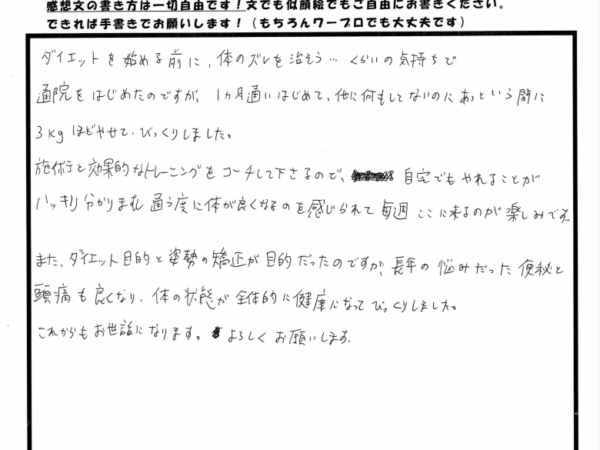 感想文の書き方は一切自由です！文でも似顔絵でもご自由にお書きください。
できれば手書きでお願いします！（もちろんワープロでも大丈夫です）
ダイエットを始める前に、体のズレを治そう…くらいの気持ちで
通院をはじめたのですが、1ヵ月通いはじめて、他に何もしてないのにあっという間に
3kgほどやせて、びっくりしました。
施術と効果的なトレーニングをコーチして下さるので、自宅でもやれることが
ハッキリ分かりますし 通う度に体が良くなるのを感じられて毎週ここに来るのが楽しみです。
また、ダイエット目的と姿勢の矯正が目的だったのですが、長年の悩みだった便秘と
頭痛も良くなり、体の状態が全体的に健康になってびっくりしました。
これからもお世話になります。よろしくお願いします。